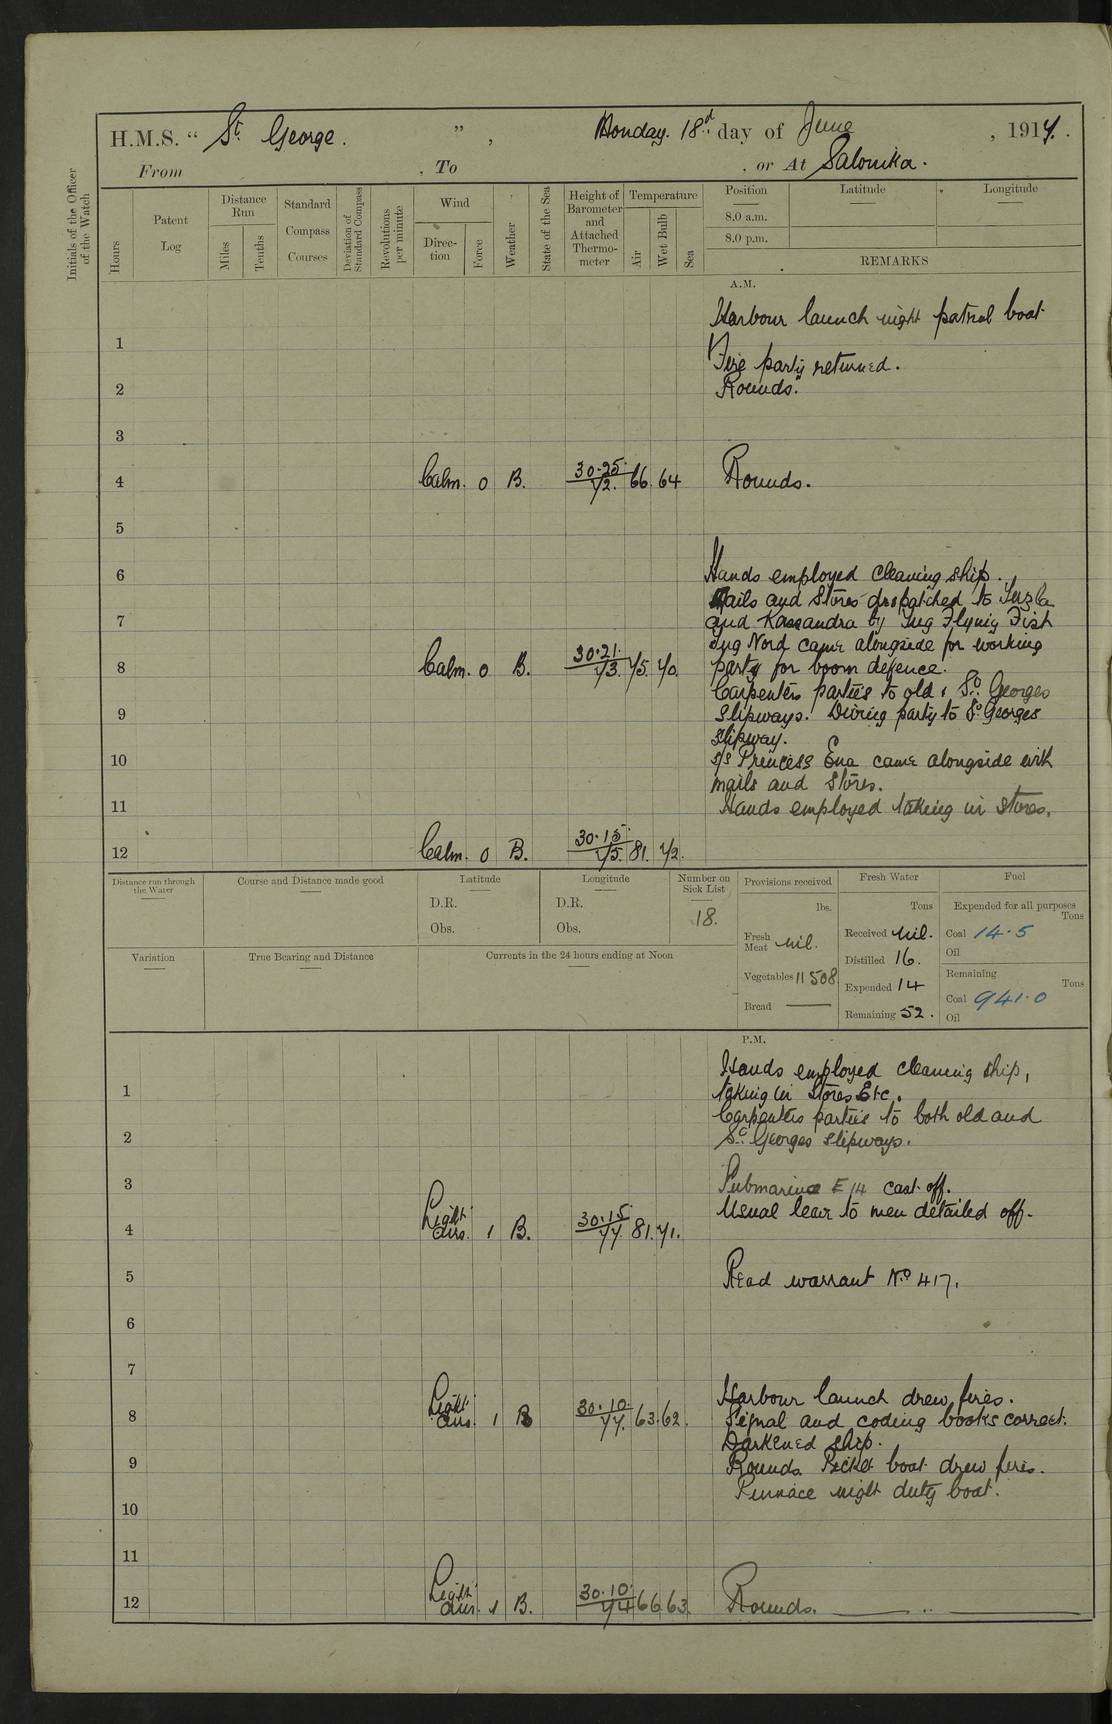 H.M.S. “ St George. ” , Monday 18th day of June , 1917.
From , To , or At Salonika.
Initials of the Officer of the Watch
Hours
Patent Log
Distance Run
Miles
Tenths
Standard Compass Courses
Deviation of Standard Compass
Revolutions per minute
Wind
Direction
Force
Weather
State of the Sea
Height of Barometer and Attached Thermometer
Temperature
Air
Wet Bulb
Sea
Position Latitude Longitude
8.0 a.m.
8.0 p.m.
REMARKS
A.M.
Harbour launch night patrol boat
1
Fire party returned.
2 Rounds.
3
4 Calm. 0 B. 30.25 72. 66. 64 Rounds.
5
6 Hands employed cleaning ship.
Mails and Stores dispatched to Tuzla
7 and Kassandra by Tug Flying Fish
Tug Nord came alongside for working
8 Calm. 0 B. 30.21. 73. 75. 70. party for boom defence.
Carpenters parties to old & St. Georges
9 Slipways. Diving party to St Georges
slipway.
10 S/S Princess Ena came alongside with
mails and Stores.
11 Hands employed taking in stores.
12 Calm. 0 B. 30.15. 75. 81. 72.
Distance run through the Water
Course and Distance made good
Latitude
D.R.
Obs.
Longitude
D.R.
Obs.
Number on Sick List
18.
Provisions received
lbs.
Fresh Meat nil.
Vegetables 11508
Bread ———
Fresh Water
Tons
Received Nil.
Distilled 16.
Expended 14
Remaining 52.
Fuel
Expended for all purposes
Tons
Coal 14.5
Oil
Remaining
Tons
Coal 941.0
Oil
Variation
True Bearing and Distance
Currents in the 24 hours ending at Noon
P.M.
Hands employed cleaning ship,
1 taking in Stores Etc.
Carpenters parties to both old and
2 St. Georges slipways.
3 Submarine E14 cast off.
Usual leave to men detailed off.
4 Light airs. 1 B. 30.15 77. 81. 71.
5 Read warrant No 417.
6
7
Harbour launch drew fires.
8 Light airs. 1 B 30.10. 77. 63. 62. Signal and coding books correct.
Darkened ship.
9 Rounds. Picket boat drew fires.
Pinnace night duty boat.
10
11
12 Light airs. 1 B. 30.10. 74 66. 63. Rounds.